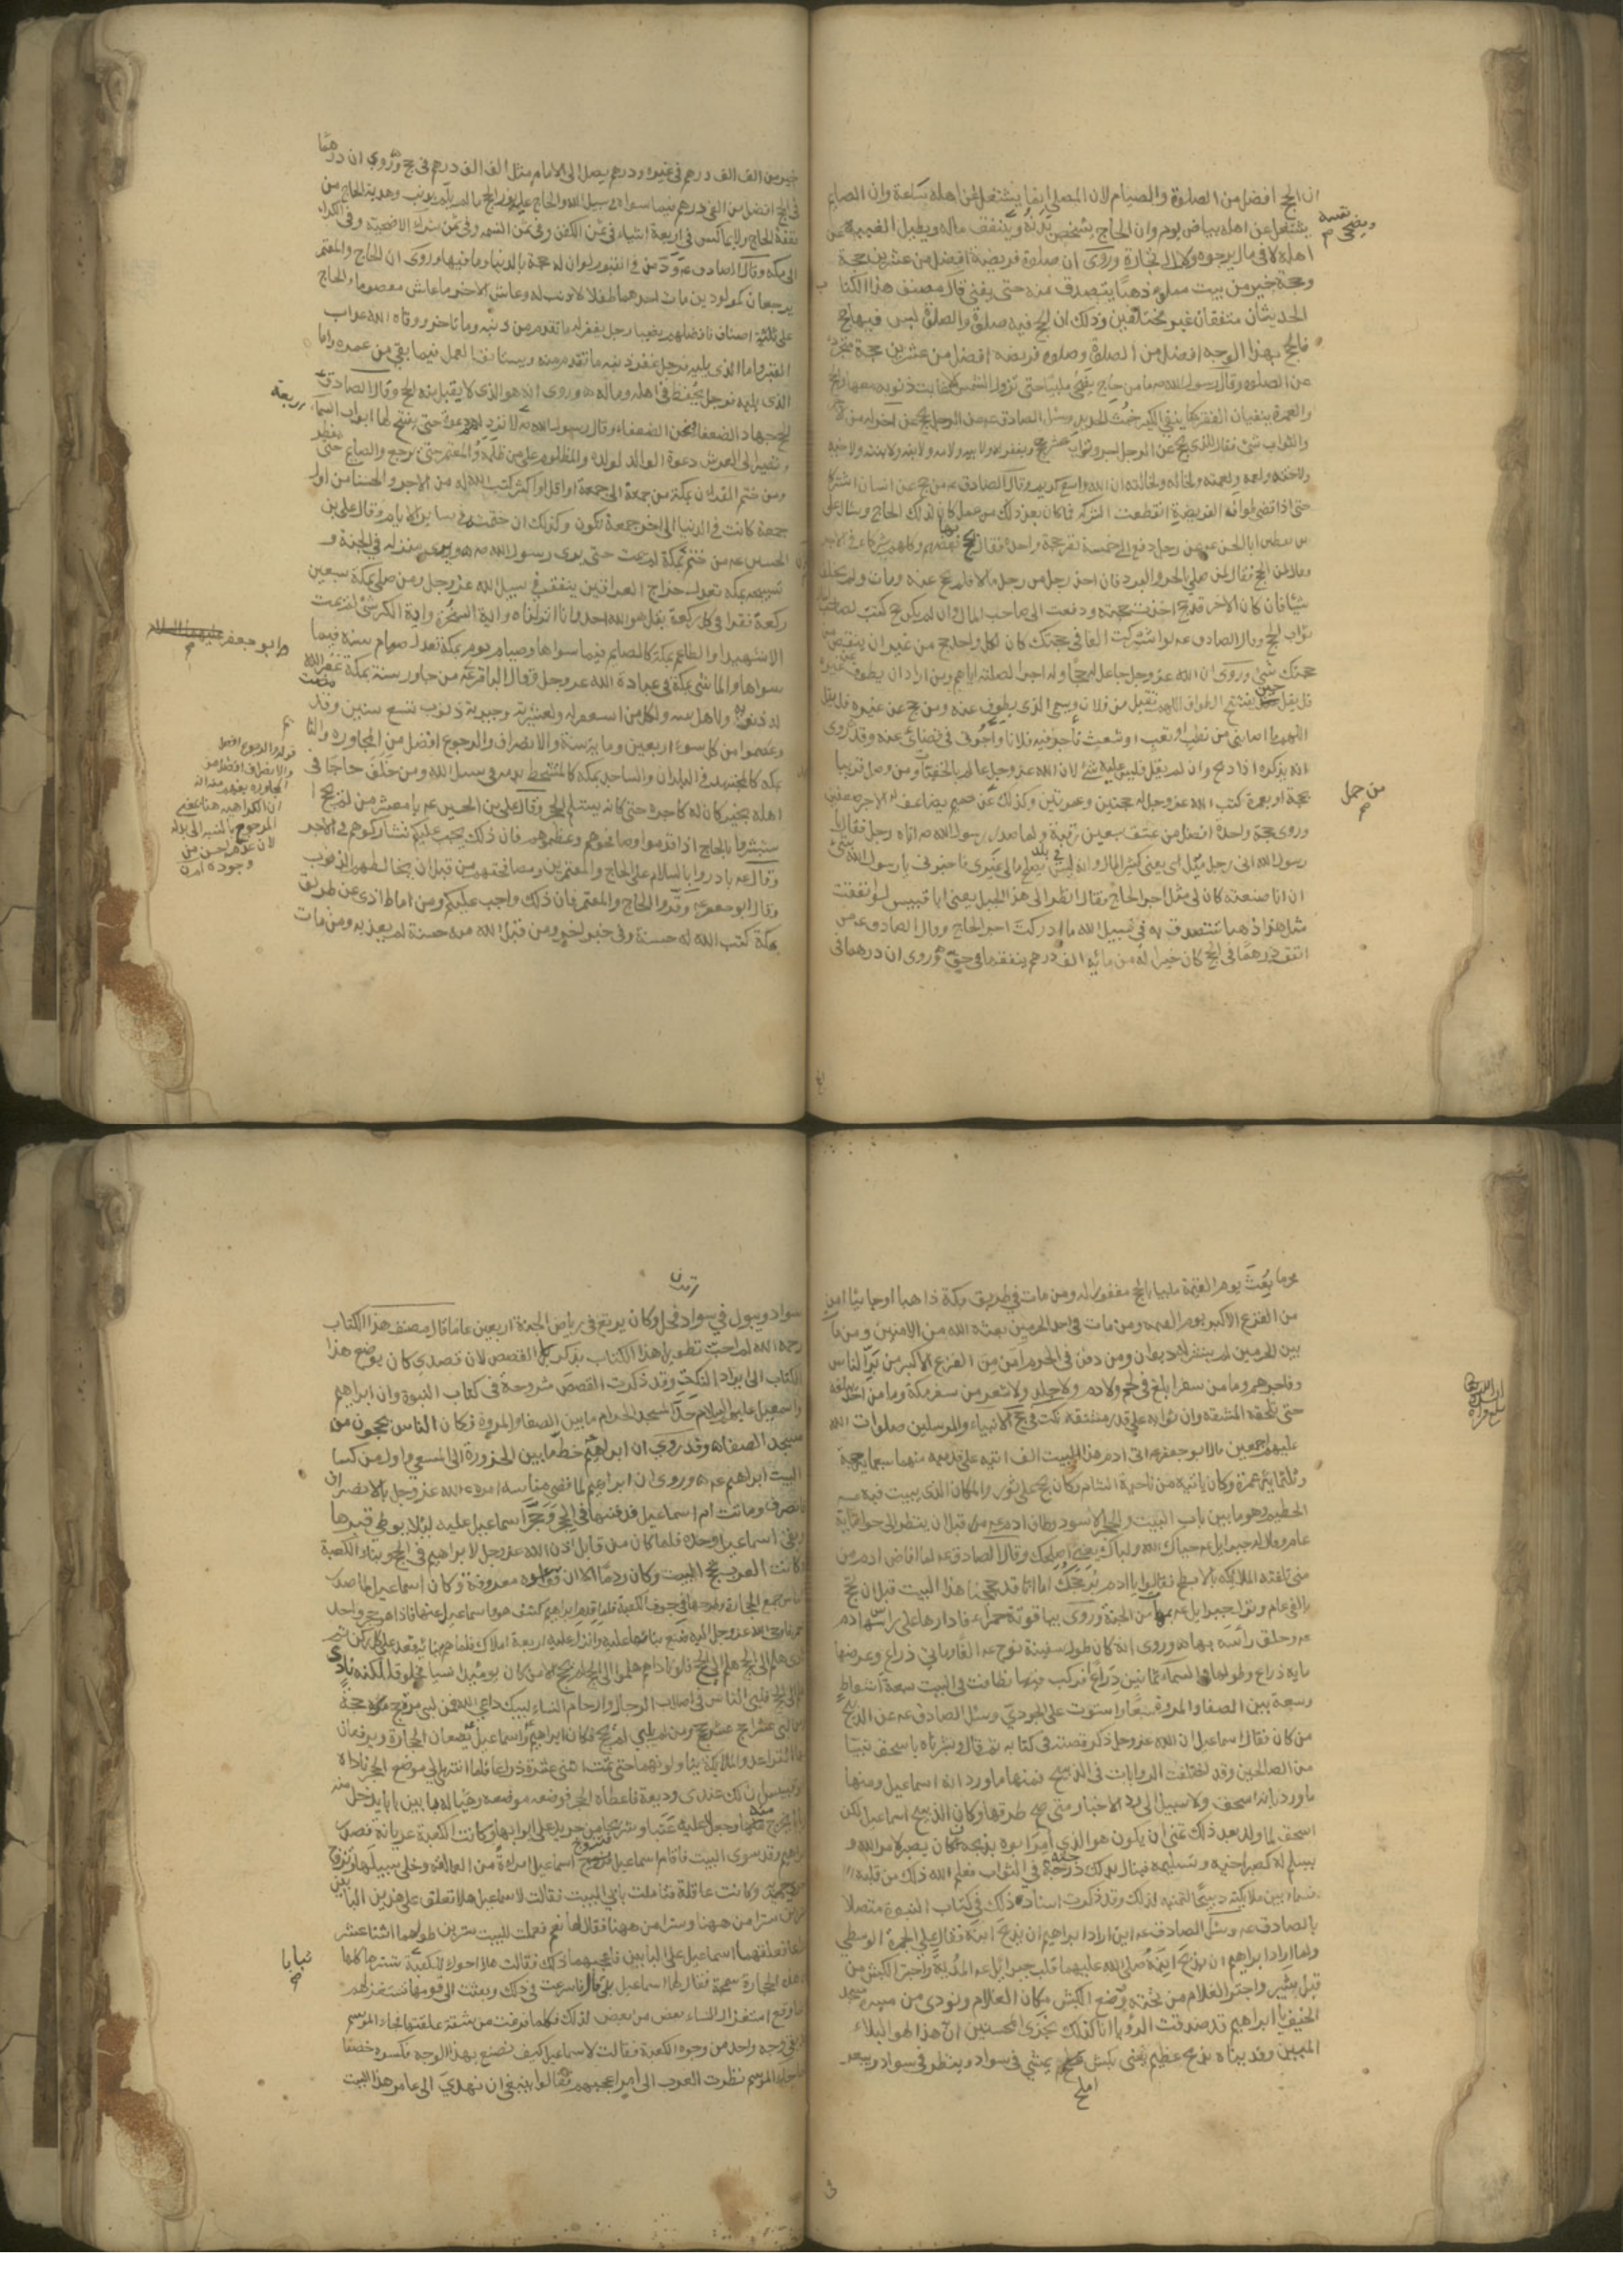 ان الحج افضل من الصلوة والصيام لان المصلي انما يشتغل عن اهله ساعة وان الصايم
يشتغل عن اهله بياض يوم وان الحاج يشخص بدنه وينفق ماله ويطيل الغيبة عن
اهله لا في مال يرجوه ولا الى تجارة وروى ان صلوة فريضة افضل من عشرين حجة
وحجة خير من بيت مملو ذهبا يتصدق منه حتى يفنى قال مصنف هذا الكتاب
الحديثان متفقان غير مختلفين وذلك ان الحج فيه صلوة والصلوة ليس فيها حج
فالحج بهذا الوجه افضل من الصلوة وصلوة فريضة افضل من عشرين حجة متجردة
عن الصلوة وقال رسول الله صه ما من حاج يضحى ملبيا حتى تزول الشمس الا غابت ذنوبه معها والحج
والعمرة ينفيان الفقر كما ينفي الكير خبث الحديد وسئل الصادق عه عن الرجل يحج عن اخر له من الاجر
والثواب شئ فقال للذي يحج عن الرجل اجر وثواب عشر حجج ويغفر له ولابيه ولامه ولابنه ولابنته ولاخيه
ولاخته ولعمه ولعمته ولخاله ولخالته ان الله واسع كريم وقال الصادق عه من حج عن انسان اشتركا
حتى اذا قضى طواف الفريضة انقطعت الشركة فما كان بعد ذلك من عمل كان لذلك الحاج وسئل علي
بن يقطين ابا الحسن عه عن رجل دفع الى خمسة نفر حجة واحدة فقال يحج بها بعضهم وكلهم شركاء في الاجر
شيئا فان كان الاجير قد حج اخذت حجته ودفعت الى صاحب المال وان لم يكن حج كتب لصاحب المال
ثواب الحج وقال الصادق عه لو اشركت الفا في حجتك كان لكل واحد حج من غير ان ينقص من
حجتك شئ وروى ان الله عز وجل جاعل له حجا وله اجرا لصلته اياهم ومن اراد ان يطوف عن غيره
فليقل حين يفتتح الطواف اللهم تقبل من فلان ويسمي الذي يطوف عنه ومن حج عن غيره فليقل
اللهم ما اصابني من نصب او تعب او شعث فأجر فيه فلانا واجرني في قضائي عنه وقد روى
انه يذكره اذا ذبح وان لم يقل فليس عليه شئ لان الله عز وجل عالم بالخفيات ومن وصل قريبا
بحجة او عمرة كتب الله عز وجل له حجتين وعمرتين وكذلك من حمل عن حميم يضاعف له الاجر ضعفين
وروى حجة واحدة افضل من عتق سبعين رقبة ولما صد رسول الله صه اتاه رجل فقال يا
رسول الله اني رجل ميل اى يعني كثير المال وانه ليس في بلد يصلح مالي غيري فاخبرني يا رسول الله بشئ
ان انا صنعته كان لي مثل اجر الحاج فقال انظر الى هذا الجبل يعني ابا قبيس لو انفقت
مثل هذا ذهبا تتصدق به في سبيل الله ما ادركت اجر الحاج وقال الصادق عه من
انفق درهما في الحج كان خيرا له من مائة الف درهم ينفقها في حق وروى ان درهما في
من حمل
خير من الف الف درهم في غيره ودرهم يصل الى الامام مثل الف الف درهم في حج وروى ان درهما
في الحج افضل من الفى درهم فيما سواه في سبيل الله والحاج عليه نور الحج ما لم يلم بذنب وهدية الحاج من
نفقة الحاج ولا يماكس في اربعة اشياء في ثمن الكفن وفي ثمن النسمة وفي ثمن شراء الاضحية وفي الكراء
الى مكة وقال الصادق عه ود من في القبور لو ان له حجة بالدنيا وما فيها وروى ان الحاج والمعتمر
يرجعان كمولودين مات احدهما طفلا لا ذنب له وعاش الاخر ما عاش معصوما والحاج
على ثلثة اصناف فافضلهم نصيبا رجل يغفر له ما تقدم من ذنبه وما تاخر ووقاه الله عذاب
القبر واما الذي يليه فرجل غفر ذنبه ما تقدم منه ويستانف العمل فيما بقي من عمره واما
الذى يليه فرجل يحفظ في اهله وماله وروى انه هو الذى لا يقبل منه الحج وقال الصادق
الحج جهاد الضعفا ونحن الضعفاء وقال رسول الله صه لا ترد لهم دعوة حتى يفتح لها ابواب السما
اربعة
وتصير الى العرش دعوة الوالد لولده والمظلوم على من ظلمه والمعتمر حتى يرجع والصايم حتى يفطر
ومن ختم القران بمكة من جمعة الى جمعة او اقل او اكثر كتب الله له من الاجر والحسنات من اول
جمعة كانت في الدنيا الى اخر جمعة تكون وكذلك ان ختمه في ساير الايام وقال علي بن
الحسين عه من ختم القران بمكة لم يمت حتى يرى رسول الله صه ويرى منزله في الجنة و
تسبيحة بمكة تعدل خراج العراقين ينفق في سبيل الله عز وجل ومن صلى بمكة سبعين
ركعة فقرا في كل ركعة بقل هو الله احد وانا انزلناه واية السخرة واية الكرسي لم يمت
الا شهيدا والطاعم بمكة كالصايم فيما سواها وصيام يوم بمكة تعدل صيام سنة فيما
سواها والماشي بمكة في عبادة الله عز وجل وقال الباقر عه من جاور سنة بمكة غفر الله
وابو جعفر
له ذنوبه ولاهل بيته ولكل من استغفر له ولعشيرته وجيرته ذنوب تسع سنين وقد مضت
وعصموا من كل سوء اربعين ومائة سنة والانصراف والرجوع افضل من المجاورة والنائم
بمكة كالمجتهد في البلدان والساجد بمكة كالمتشحط بدمه في سبيل الله ومن خلف حاجا في
اهله بخير كان له كاجره حتى كانه يستلم الحجر وقال علي بن الحسين عه يا معشر من لم يحج ا
ستبشروا بالحاج اذا قدموا وصافحوهم وعظموهم فان ذلك يجب عليكم تشاركوهم في الاجر
وقال عه بادروا بالسلام على الحاج والمعتمرين ومصافحتهم من قبل ان يخالطهم الذنوب
وقال ابو جعفر عه وقروا الحاج والمعتمر فان ذلك واجب عليكم ومن اماط اذى عن طريق
مكة كتب الله له حسنة وفي خبر اخر ومن قبل الله منه حسنة لم يعذبه ومن مات
قوله والرجوع افضل
محرما بُعِثَ يوم القيمة ملبيا بالحج مغفورا له ومن مات في طريق مكة ذاهبا او جائيا امن
من الفزع الاكبر يوم القيمة ومن مات في احد الحرمين بعثه الله من الامنين ومن مات
بين الحرمين لم ينشر له ديوان ومن دفن في الحرم امن من الفزع الاكبر من برّ الناس
وفاجرهم وما من سفر ابلغ في لحم ولا دم ولا جلد ولا شعر من سفر مكة وما من احد يبلغه
حتى تلحقه المشقة وان ثوابه على قدر مشقته نكت في حج الانبياء والمرسلين صلوات الله
عليهم اجمعين قال ابو جعفر عه اتى ادم هذا البيت الف اتية على قدميه منها سبعماية حجة
وثلثمائة عمرة وكان ياتيه من ناحية الشام وكان يحج على ثور والمكان الذى يبيت فيه عه
الحطيم وهو ما بين باب البيت والحجر الاسود وطاف ادم عه من قبل ان ينظر الى حوا مائة
عام وقال له جبرايل عه حياك الله ولباك يعني اصلحك وقال الصادق عه لما افاض ادم من
منى تلقته الملايكة بالابطح فقالوا يا ادم بُرّ حَجُّك اما انا قد حججنا هذا البيت قبل ان تحج
بالفي عام ونزل جبرايل عه بمهاة من الجنة وروى بياقوتة حمراء فادارها على راس ادم
عه وحلق راسه بها وروى انه كان طول سفينة نوح عه الفا ومائتي ذراع وعرضها
مايه ذراع وطولها في السماء ثمانين ذراعا فركب فيها فطافت في البيت سبعة اشواط
وسعت بين الصفا والمروة سبعا واستوت على الجودي وسئل الصادق عه عن الذبيح
من كان فقال اسماعيل ان الله عز وجل ذكر قصته في كتابه ثم قال وبشرناه باسحق نبيا
من الصالحين وقد اختلفت الروايات في الذبيح فمنها ما ورد انه اسماعيل ومنها
ما ورد بانه اسحق ولا سبيل الى رد الاخبار متى صح طرقها وكان الذبيح اسماعيل لكن
اسحق لما ولد بعد ذلك تمنى ان يكون هو الذي امر ابوه بذبحه فكان يصبر لامر الله و
يسلم له كصبر اخيه وتسليمه فينال بذلك درجته في الثواب فعلم الله ذلك من قلبه
فسماه بين ملايكته ذبيحا لتمنيه لذلك وقد ذكرت اسناد ذلك في كتاب النبوة متصلا
بالصادق عه وسئل الصادق عه اين اراد ابراهيم ان يذبح ابنه فقال على الجمرة الوسطى
ولما اراد ابراهيم ان يذبح ابنه صلى الله عليهما قلب جبرايل عه المدية واجتر الكبش من
قبل ثبير واجتر الغلام من تحته ووضع الكبش مكان الغلام ونودى من ميسرة مسجد
الخيف يا ابراهيم قد صدقت الرؤيا انا كذلك نجزى المحسنين ان هذا لهو البلاء
المبين وفديناه بذبح عظيم يعني بكبش يمشي في سواد وينظر في سواد ويبعر
املح
سواد ويبول في سواد فحل وكان يرتع في رياض الجنة اربعين عاما قال مصنف هذا الكتاب
رحمه الله لم احب تطويل هذا الكتاب بذكر كل القصص لان قصدي كان بوضع هذا
الكتاب الى ايراد النكت وقد ذكرت القصص مشروحة في كتاب النبوة وان ابراهيم
واسمعيل عليهما السلام حدا المسجد الحرام ما بين الصفا والمروة فكان الناس يحجون من
مسجد الصفا وقد روى ان ابراهيم خط ما بين الحزورة الى المسعى واول من كسا
البيت ابراهيم عه وروى ان ابراهيم لما قضى مناسكه امره الله عز وجل بالانصراف
فانصرف وماتت ام اسماعيل فدفنها في الحجر وحجر اسماعيل عليه لئلا يوطى قبرها
وبقى اسماعيل وحده فلما كان من قابل اذن الله عز وجل لابراهيم في الحج وبناء الكعبة
وكانت العرب تحج البيت وكان ردما الا ان قواعده معروفة وكان اسماعيل لما صدر
الناس جمع الحجارة وطرحها في جوف الكعبة فلما قدم ابراهيم كشف هو واسماعيل عنها فاذا هو حجر واحد
احمر فاوحى الله عز وجل اليه ضع بناءها عليه وانزل عليه اربعة املاك فلما تم بناؤه قعد على كل ركن ثم
نادى هلم الى الحج هلم الى الحج فلو ناداهم هلموا الى الحج لم يحج الا من كان يومئذ انسيا مخلوقا ولكنه نادى
هلم الى الحج فلبى الناس في اصلاب الرجال وارحام النساء لبيك داعي الله فمن لبى مرة حج حجة
ومن لبى عشرا حج عشر حجج ومن لم يلبي لم يحج فكان ابراهيم واسماعيل يضعان الحجارة ويرفعان
لهما القواعد والملايكة يناولونهما حتى تمت اثنى عشرة ذراعا فلما انتهى الى موضع الحجر ناداه
ابو قبيس ان لك عندى وديعة فاعطاه الحجر فوضعه موضعه وهيأ له بابين بابا يدخل منه
وبابا يخرج منه وجعل عليه عتبا وشرجا من جريد على ابوابها وكانت الكعبة عريانة فصدر
ابراهيم وقد سوى البيت فاقام اسماعيل فتزوج اسماعيل امراة من العمالقة وخلى سبيلها وتزوج
حميرية وكانت عاقلة فتاملت بابي البيت فقالت لاسماعيل هلا تعلق على هذين البابين
سترين سترا من ههنا وسترا من ههنا فقال لها نعم فعملت للبيت سترين طولهما اثنا عشر
ذراعا فعلقهما اسماعيل على البابين فاعجبهما ذلك فقالت هلا احوك للكعبة ثيابا تسترها كلها
فان هذه الحجارة سمجة فقال لها اسماعيل بلى فاسرعت في ذلك وبعثت الى قومها تستغزلهم
وانما وقع استغزال النساء بعض من بعض لذلك فكلما فرغت من شقة علقتها فجاء الموسم
وبقى وجه واحد من وجوه الكعبة فقالت لاسماعيل كيف نصنع بهذا الوجه فكسوه خصفا
فجاء الموسم نظرت العرب الى امر اعجبهم فقالوا ينبغي ان نهدى الى عامر هذا البيت
ثيابا